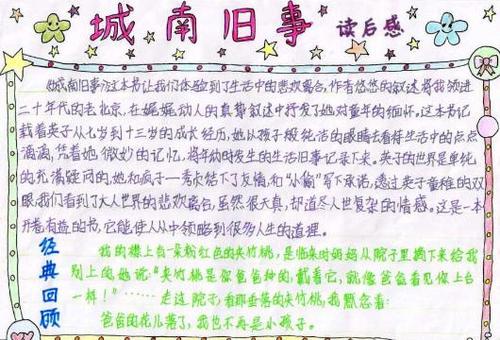 城南旧事 读后感
《城南旧事》这本书让我们体验到了生活中的悲欢离合,作者悠悠的叙述将我领进
二十年代的老北京,在娓娓动人的真尊叙述中抒发了她对童年的缅怀。这本书记
载着英子从七岁到十三岁的成长经历,她以孩子般纯洁的眼睛去看待生活中的点点
滴滴,凭着她微妙的记忆,将年幼时发生的生活旧事记录下来。英子的世界是单纯
的充满疑问的,她和疯子—秀贞结下了友情,和“小偷”写下承诺,透过英子童稚的双
眼我们看到了大人世界的悲欢离合,虽然很天真,却道尽人世复杂的情感。这是一本
开卷有益的书,它能使人从中领略到很多人生的道理。
经典回顾
我的襟上有一朵粉红色的夹竹桃,是临来时妈妈从院子里摘下来给我
别上的她说:“夹竹桃是你爸爸种的,戴着它,就像爸爸看见你上台
一样!”……走过院子,看那垂落的夹竹桃,我默念着:
爸爸的花儿落了,我也不再是小孩子。